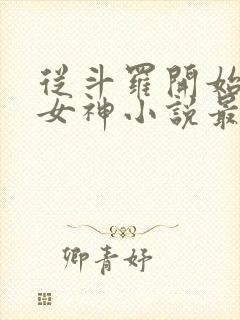 從斗羅開始
女神小說最
卿青妤